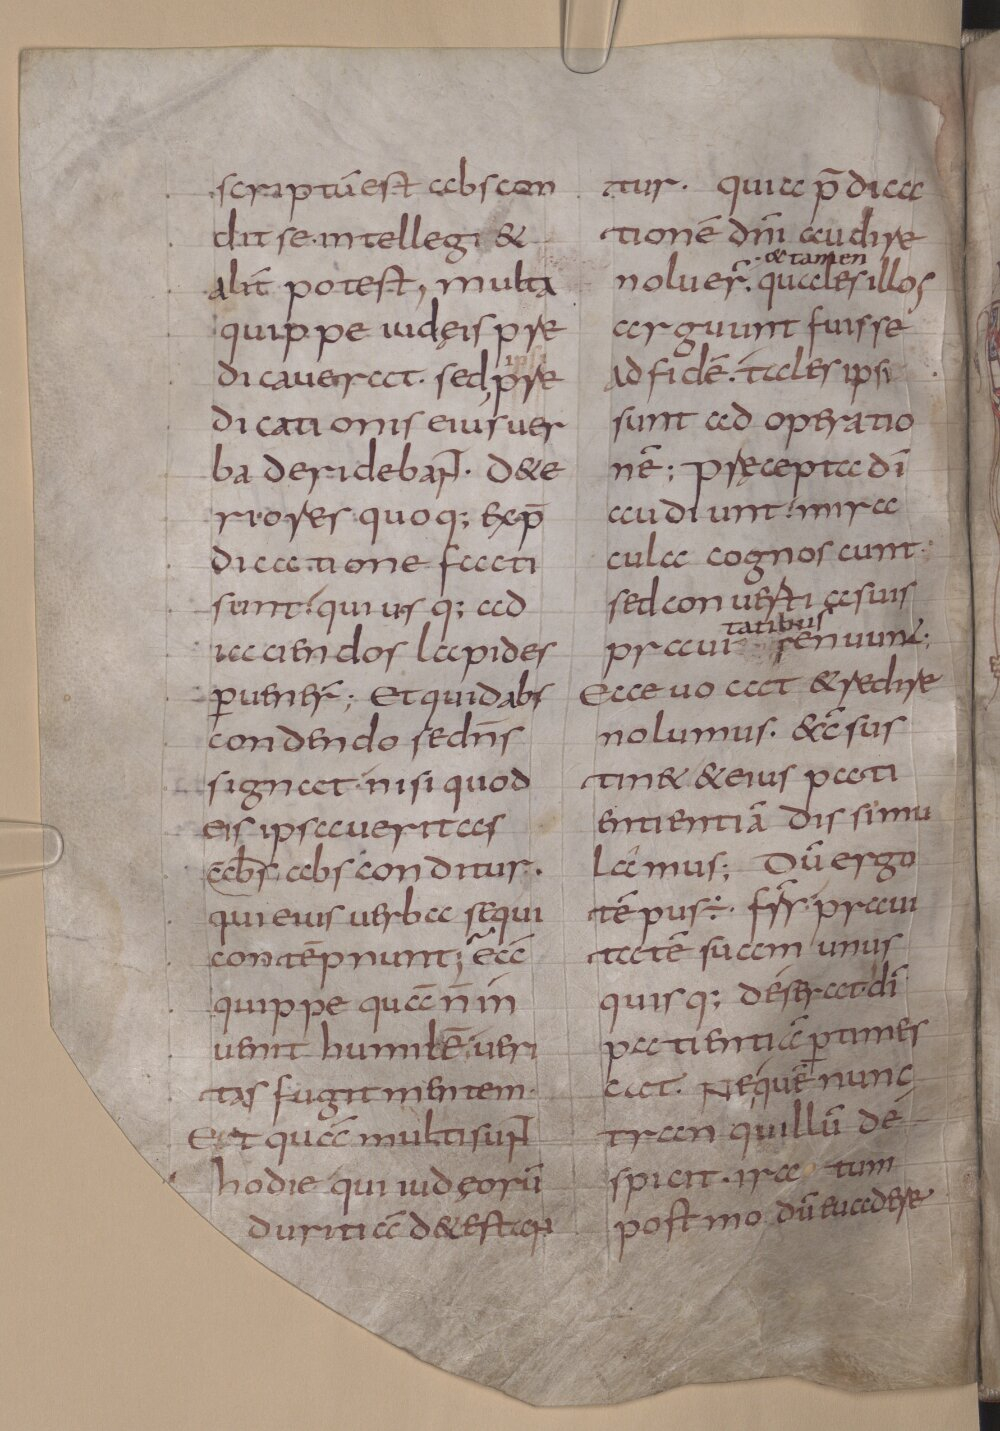 scriptū est abscon
dit se. intellegi &
alit̄ potest, multa
quippe iudęis prae
dicaverat. sed, prae
ipsi
dicationis eius ver
ba deridebaɴ̄t. D&e
riores quoq; ex p̄
dicatione facti
sunt. qui usq; ad
iaciendos lapides
ꝑvener̄; Et quid abs
condendo se dn̄s
signat. nisi quod
eis ipsa veritas
ab̄s. absconditur.
qui eius verba sequi
contēpnunt; Eā
quippe quā n̄ in
venit humilē. veri
tas fugit mentem.
Et quā multi suɴt
hodie qui iudęorū
duritiā d&estan
tur. quia p̄dica
tionē dn̄i audire
& tamen
noluer̄. quales illos
arguunt fuisse
ad fidē. tales ipsi
sunt ad operatio
nē; Pręcepta dī
audiunt. mira
cula cognoscunt.
sed converti a suis
tatibus
pravi renuunt;
Ecce vocat & redire
nolumus. &cē sus
tin& & eius pati
entientiā dissimu
lamus; Dū ergo
tēpus:. fr̄r. pravi
tatē suam unus
quisq; deserat. dī
patientiā ꝑtimes
cat. Ne quē nunc
tran quillū de
spicit. ira tum
postmodū evadere